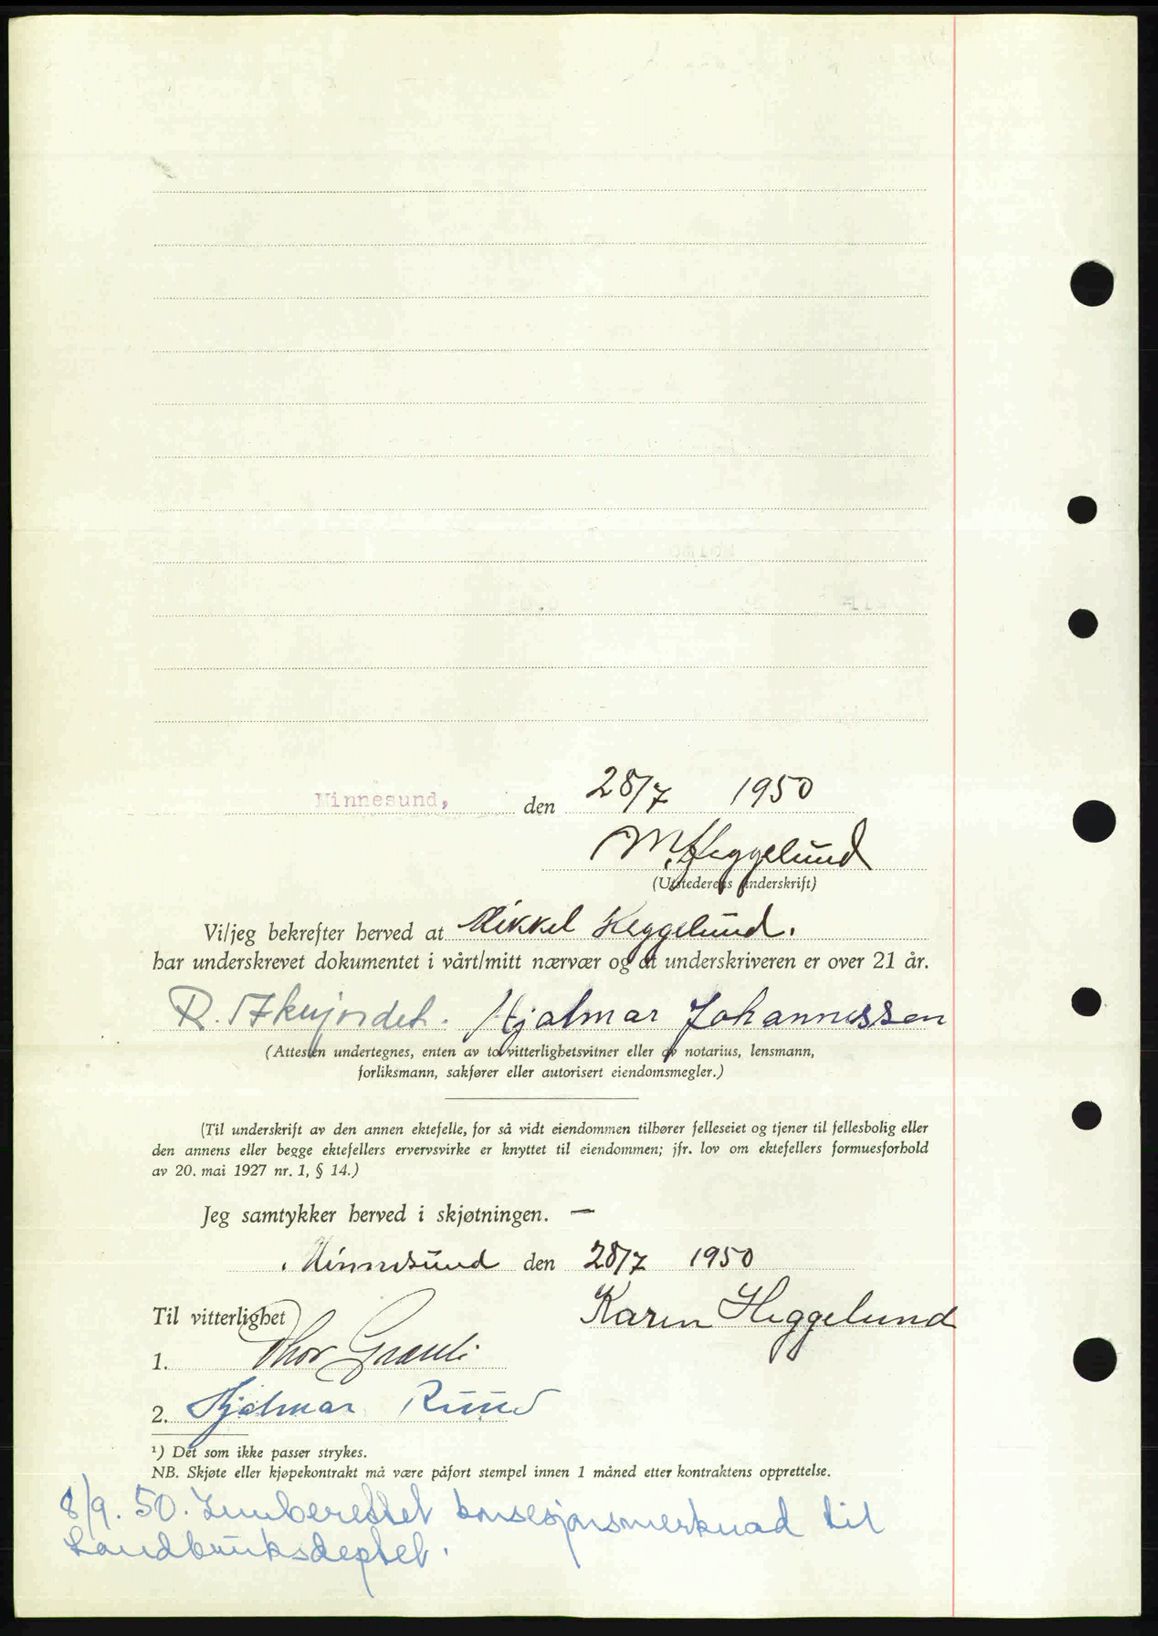 Minnesund, den 28/7 1950
M. Heggelund
(Utstederens underskrift)
Vi/jeg bekrefter herved at Mikkel Heggelund.
har underskrevet dokumentet i vårt/mitt nærvær og at underskriveren er over 21 år.
R. Hjalmar Johannessen
(Attesten undertegnes, enten av to vitterlighetsvitner eller av notarius, lensmann,
forliksmann, sakfører eller autorisert eiendomsmegler.)
(Til underskrift av den annen ektefelle, for så vidt eiendommen tilhører felleseiet og tjener til fellesbolig eller
den annens eller begge ektefellers ervervsvirke er knyttet til eiendommen; jfr. lov om ektefellers formuesforhold
av 20. mai 1927 nr. 1, § 14.)
Jeg samtykker herved i skjøtningen. —
Minnesund den 28/7 1950
Til vitterlighet Karen Heggelund
1. Thor
2. Hjalmar Ruud
¹) Det som ikke passer strykes.
NB. Skjøte eller kjøpekontrakt må være påført stempel innen 1 måned etter kontraktens opprettelse.
8/9. 50. Innberettet konsesjonsmerknad til
Landbruksdeptet.